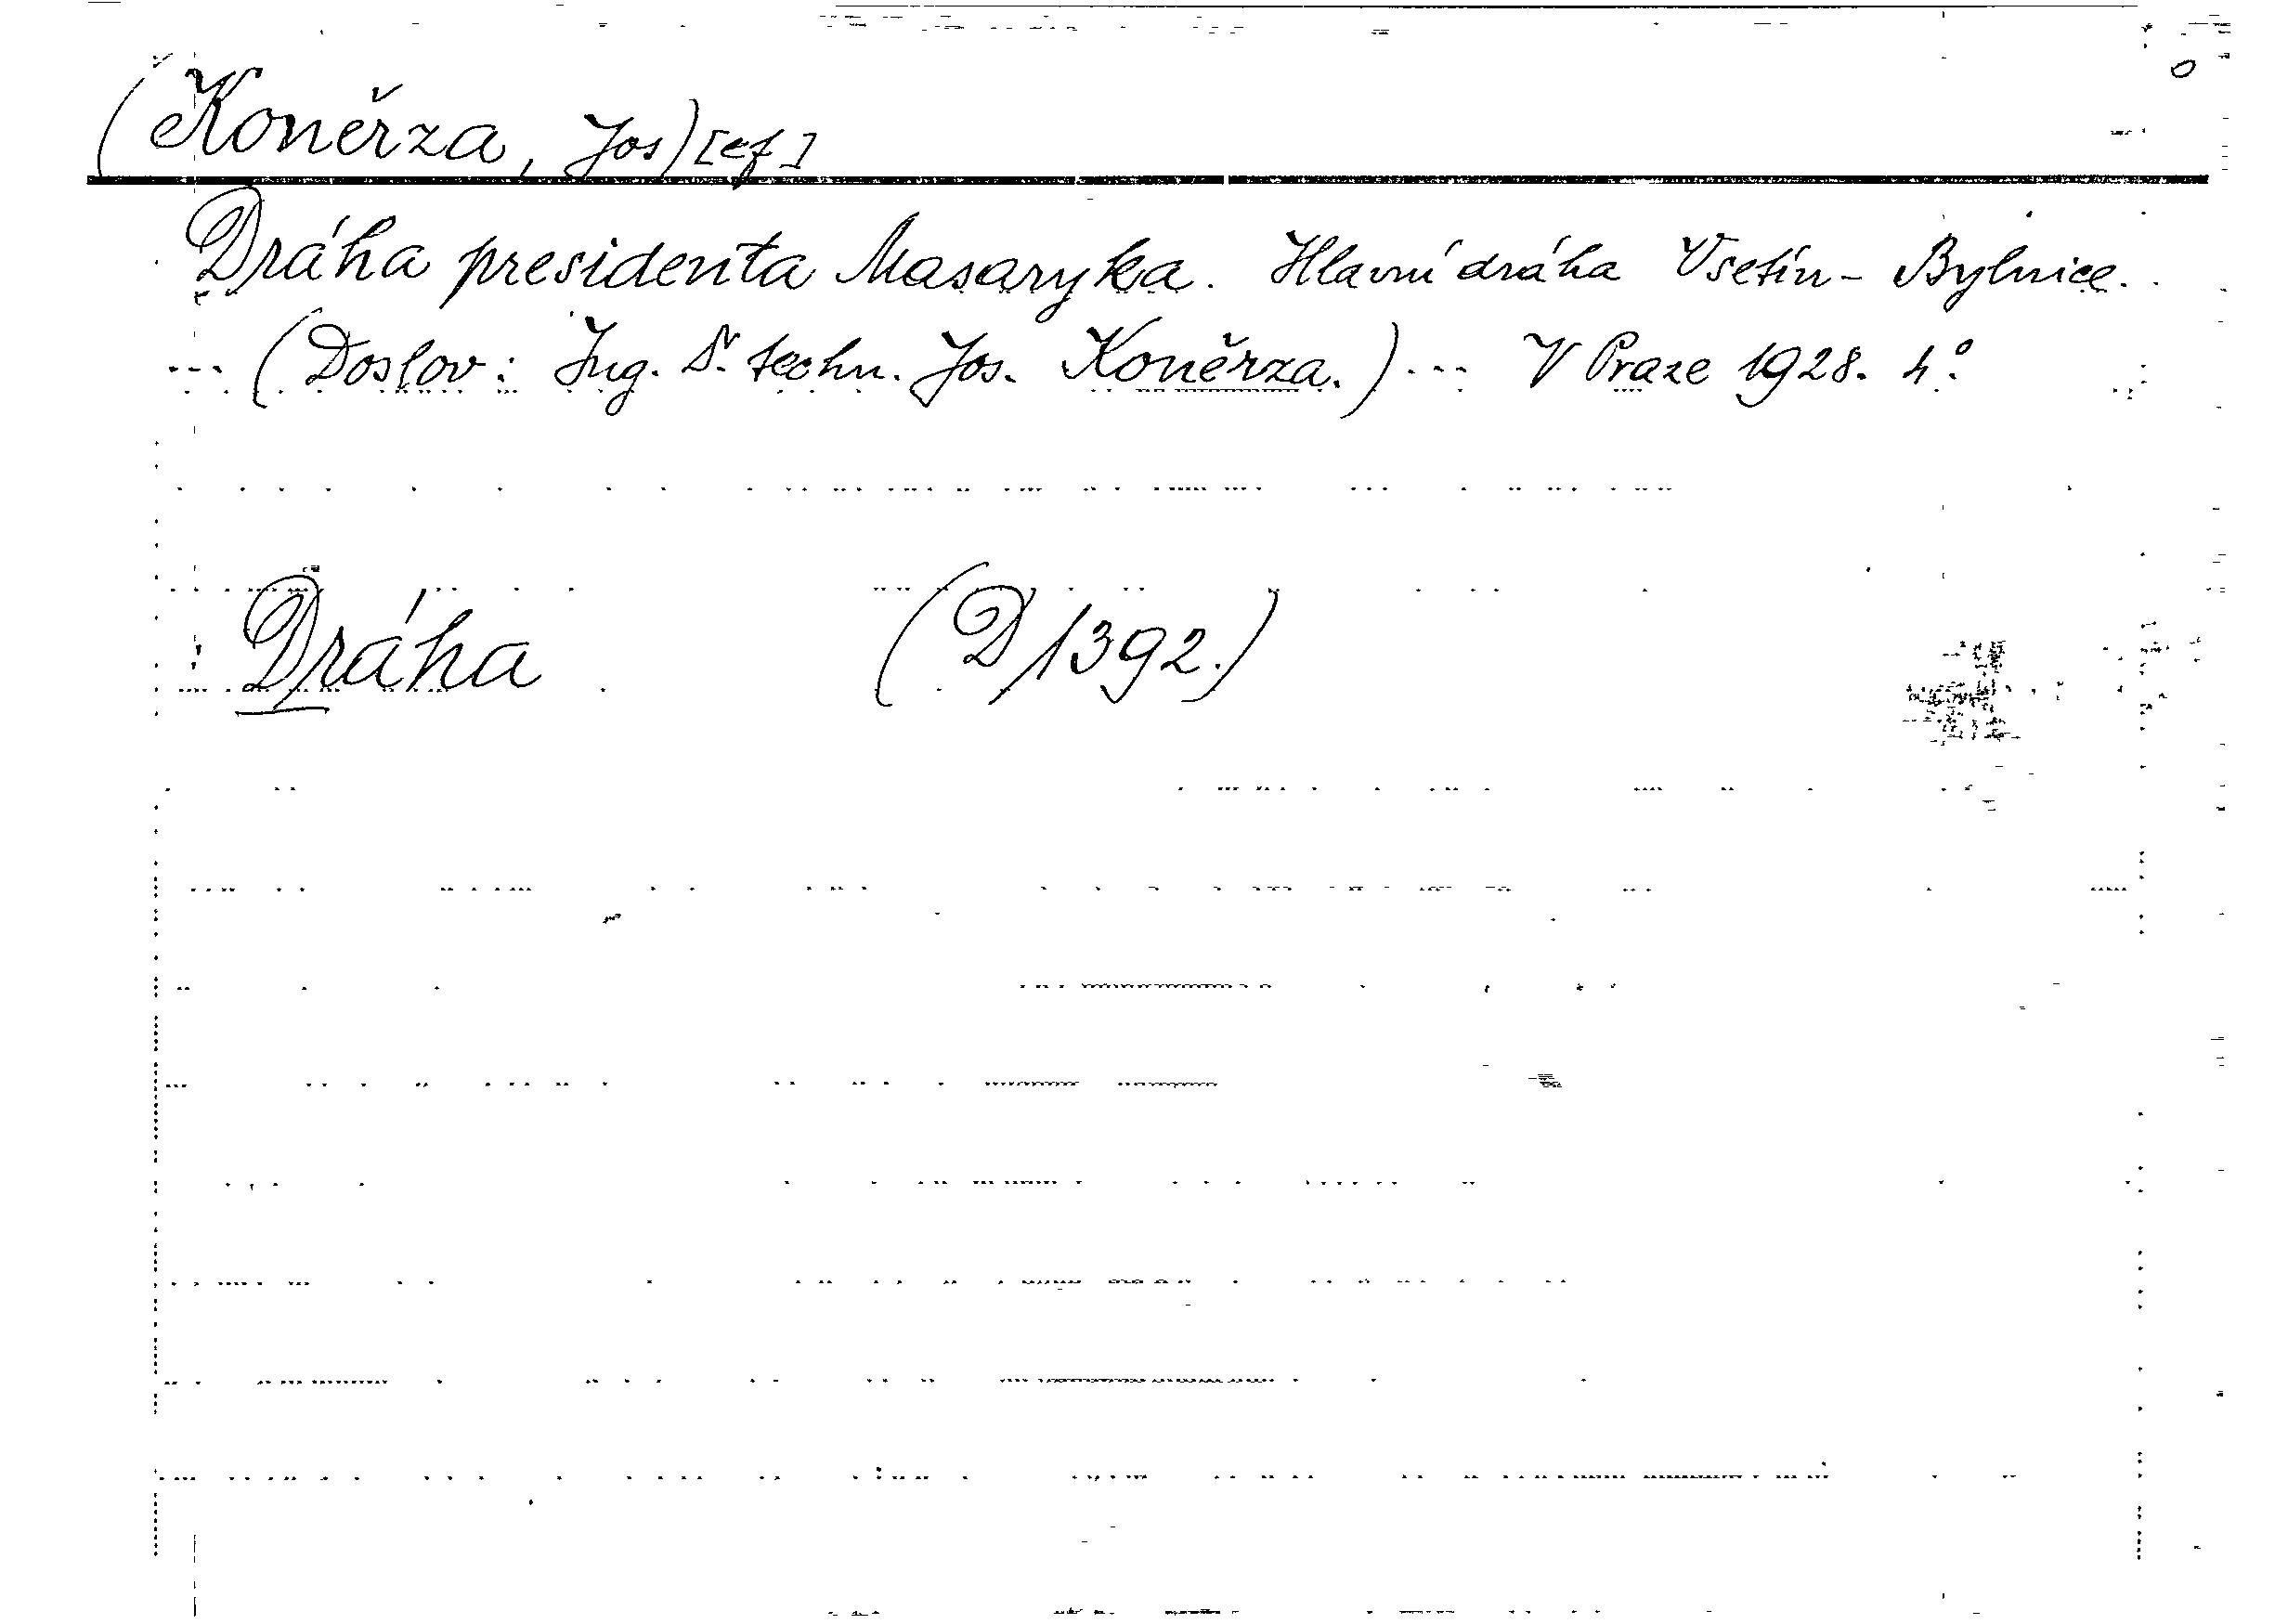 (Koněrza, Jos)[ef]
Dráha presidenta Masaryka. Hlavní dráha Vsetín - Bylnice.
... (Doslov: Ing. Dr. techn. Jos. Koněrza.) ... V Praze 1928. 4°.
Dráha (D 1392.)